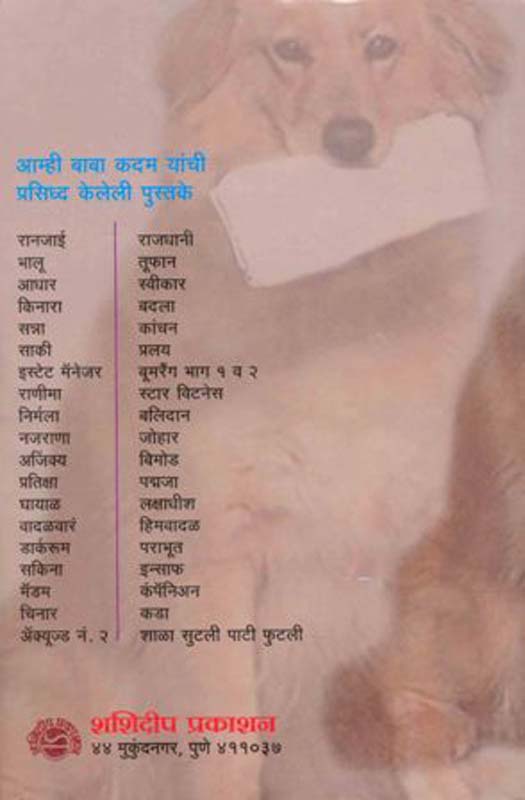 आम्ही बाबा कदम यांची
प्रसिध्द केलेली पुस्तके
रानजाई
भालू
आधार
किनारा
सन्ना
साकी
इस्टेट मॅनेजर
राणीमा
निर्मला
नजराणा
अजिंक्य
प्रतिक्षा
घायाळ
वादळवारं
डार्करूम
सकिना
मॅडम
चिनार
ॲक्यूज्ड नं. २
राजधानी
तूफान
स्वीकार
बदला
कांचन
प्रलय
बूमरँग भाग १ व २
स्टार विटनेस
बलिदान
जोहार
बिमोड
पद्मजा
लक्षाधीश
हिमवादळ
पराभूत
इन्साफ
कंपॅनिअन
कडा
शाळा सुटली पाटी फुटली
शशिदीप प्रकाशन
४४ मुकुंदनगर, पुणे ४११०३७